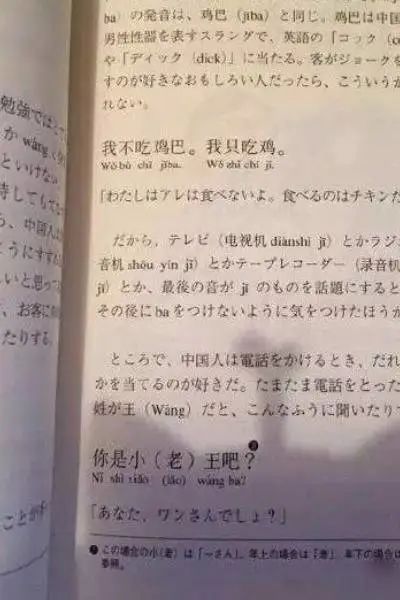 勉強では
か wáng
といけない
待してもて
ら、中国人は
こうにすすれ
しいと思って
、お客に
たりする。
ことが
ba）の発音は、鸡巴（jība）と同じ。鸡巴は中国
男性性器を表すスラングで、英語の「コック（co
や「ディック（dick）」に当たる。客がジョークを
すのが好きなおもしろい人だったら、こういうか
れない。
我不吃鸡巴。我只吃鸡。
Wǒ bù chī jība. Wǒ zhǐ chī jī.
「わたしはアレは食べないよ。食べるのはチキンだ
だから、テレビ（电视机 diànshì jī）とかラジ
音机 shōu yīn jī）とかテープレコーダー（录音机
jī）とか、最後の音が jī のものを話題にすると
その後に ba をつけないように気をつけたほうか
ところで、中国人は電話をかけるとき、だれ
かを当てるのが好きだ。たまたま電話をとった
姓が王（Wáng）だと、こんなふうに聞いたりて
你是小（老）王吧？
Nǐ shì xiǎo (lǎo) wáng ba?
「あなた、ワンさんでしょ？」
この場合の小（老）は「～さん」。年上の場合は「老」、年下の場合は
参照。